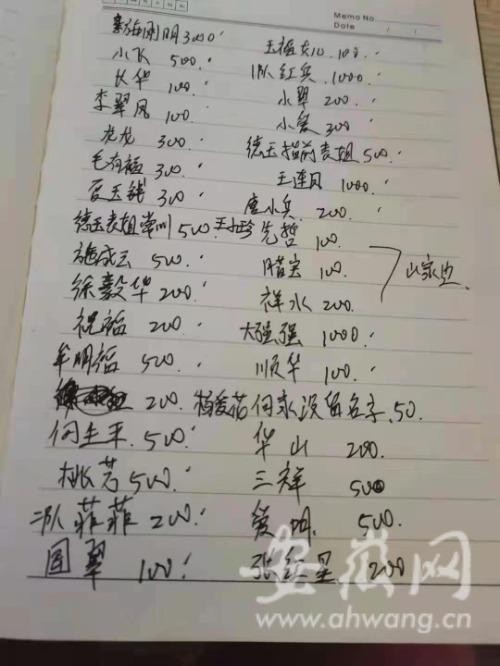 Memo No.
Date
小飞 500.
王福大儿 100.
长华 100.
1队红兵 1000.
李翠凤 100
小翠 200.
龙龙 300
小爱 300
毛有福 300
德玉 表姐 500.
300
王连凤 1000.
德玉表姐常州 500.
唐小兵 200.
施成云 500.
王小珍 先哲 100.
徐毅华 200.
腊宏 100.
祝福 200.
祥水 200
牟明福 500.
大强强 1000.
200.
顺华 100.
杨爱花 何家没留名字.50.
何生平.500.
华山 200.
桃芳 500.
三祥 500
二队菲菲 200.
爱明. 500.
国翠 100.
张红星. 200
山家边
安徽网
www.ahwang.cn